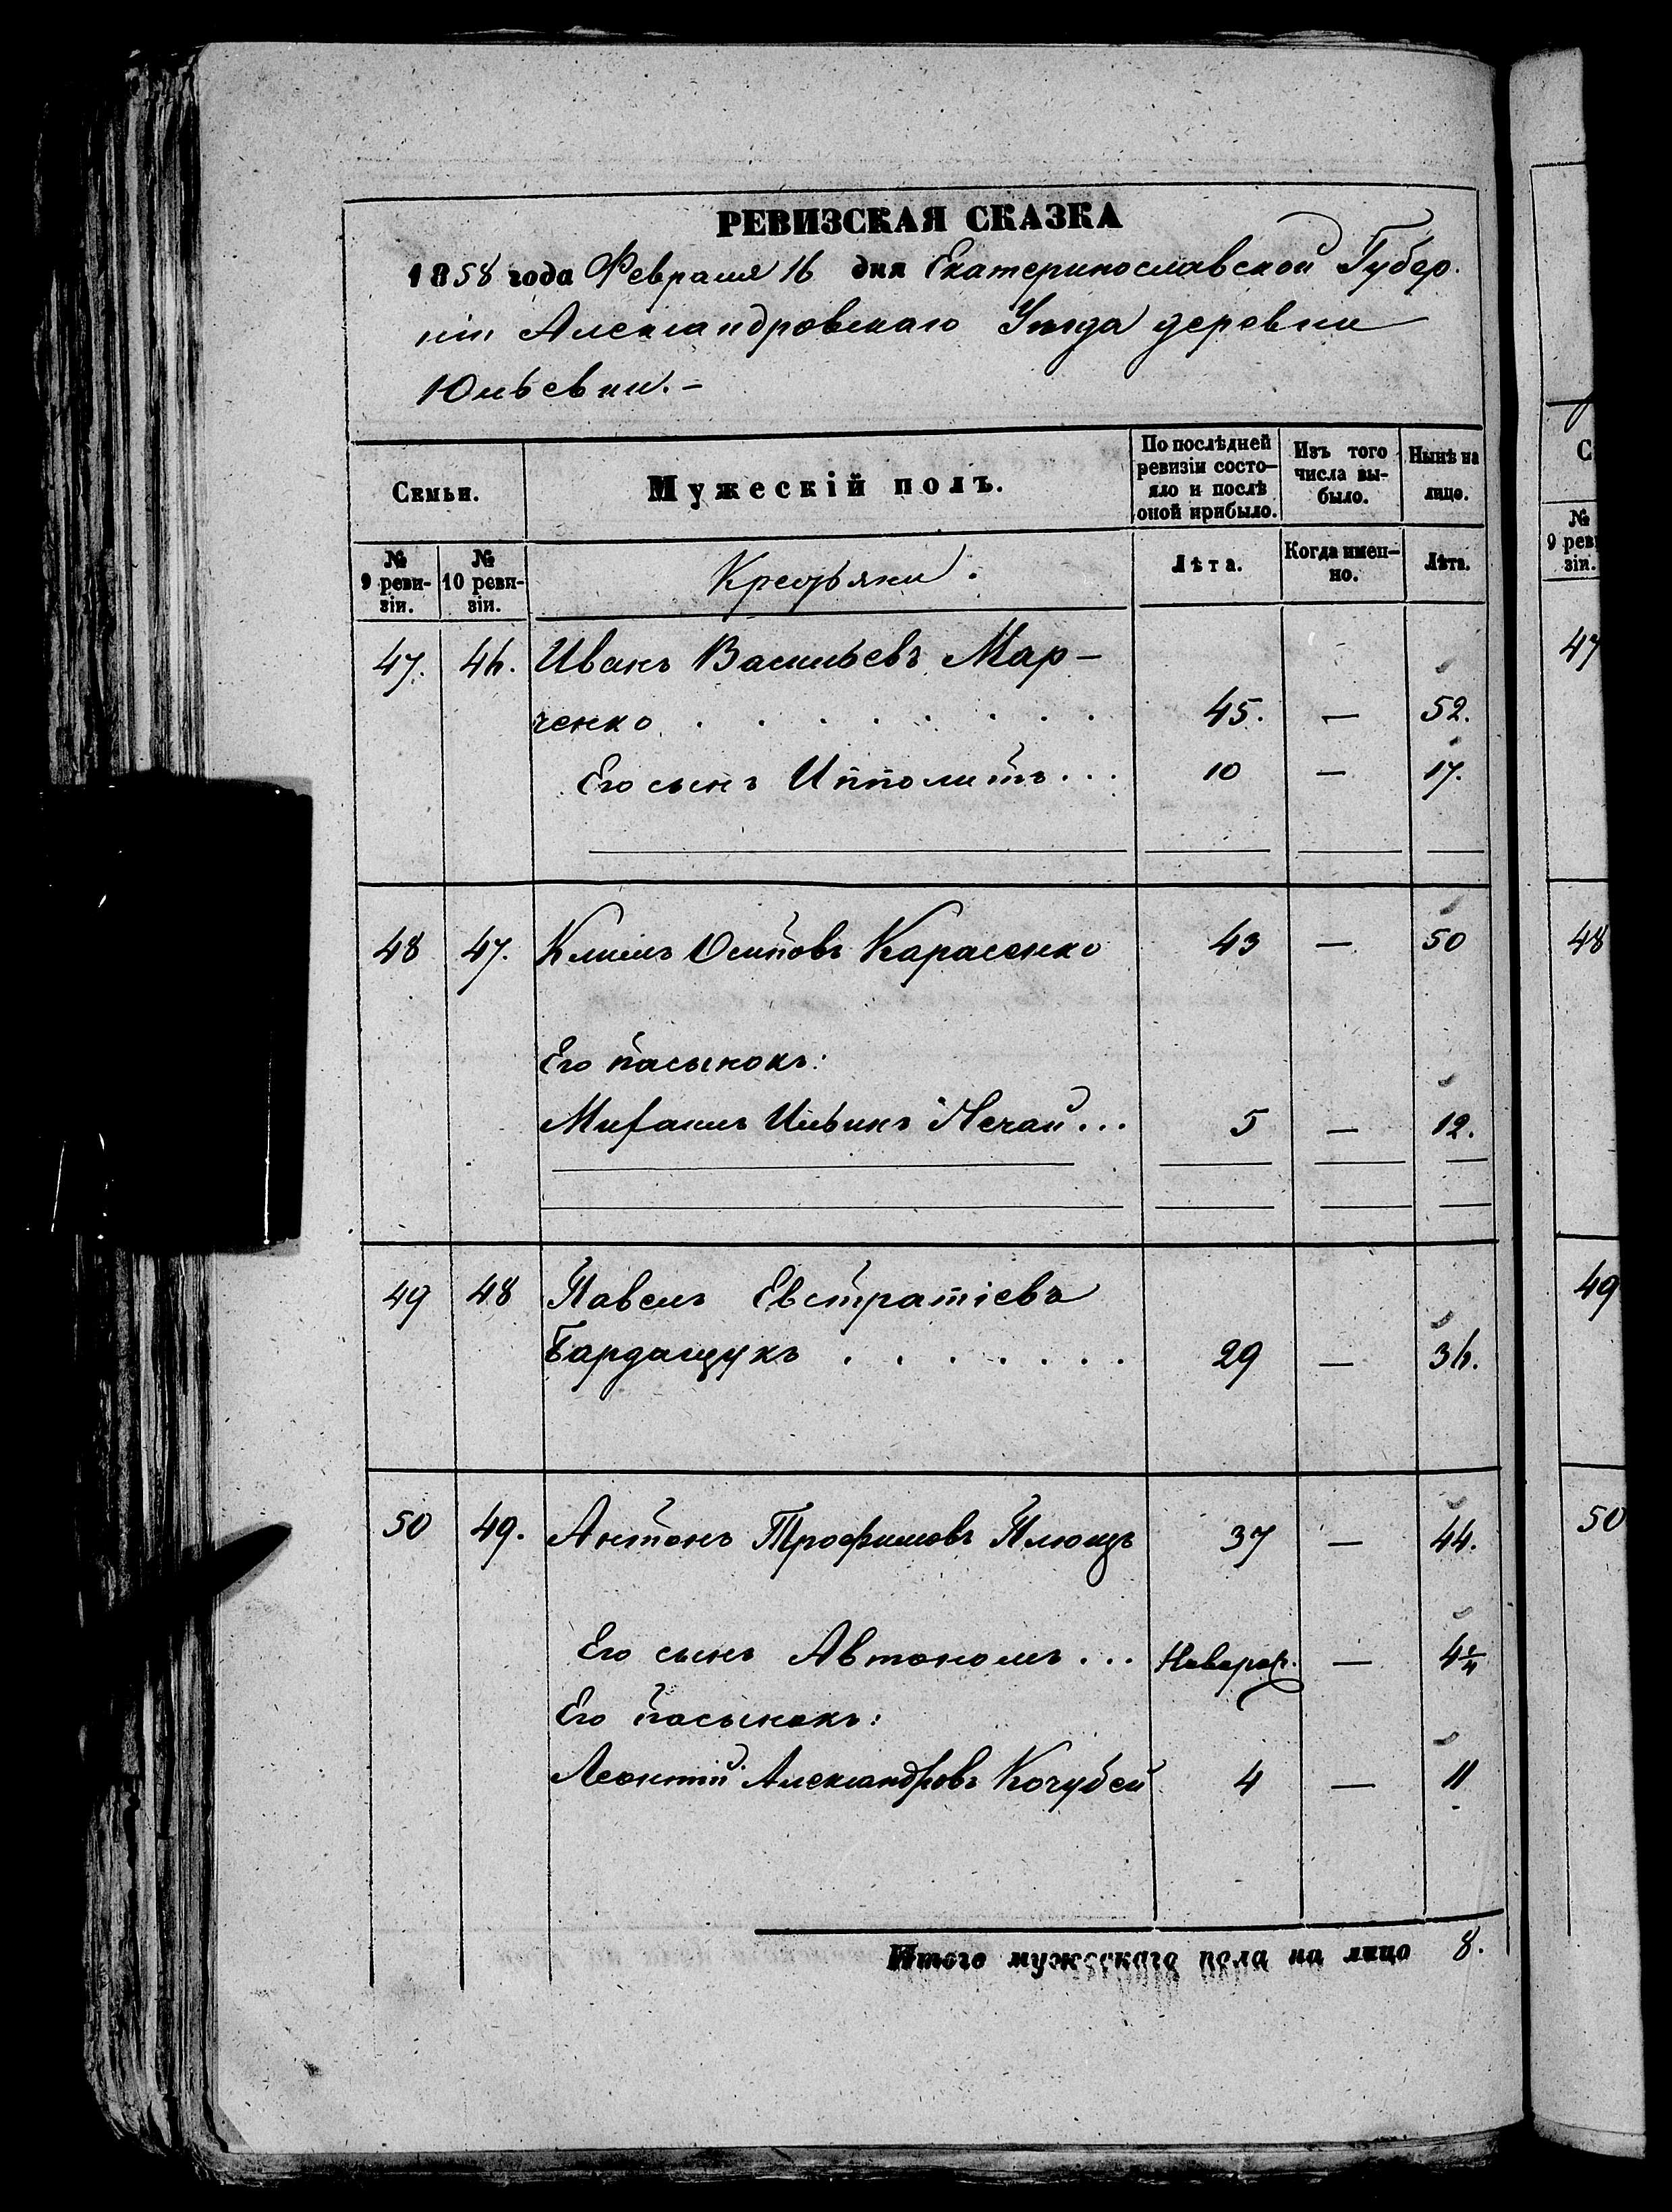 РЕВИЗСКАЯ СКАЗКА
1858 года Февраля 16 дня Екатеринославской Губер
ніи Александровскаго Уѣзда деревни
Юльевки.-
Семьи.
Мужескій полъ.
По послѣдней ревизіи состояло и послѣ оной прибыло.
Изъ того числа выбыло.
Нынѣ на лицо.
№ 9 ревизіи.
№ 10 ревизіи.
Крестьяне.
Лѣта.
Когда именно.
Лѣта.
47. 46. Иванъ Васильевъ Мар-
ченко . . . . . . . . 45. — 52.
Его сынъ Ипполитъ... 10 — 17.
48 47. Климъ Осиповъ Карасенко 43 — 50
Его пасынокъ:
Михаилъ Ильинъ Нечай... 5 — 12.
49 48 Павелъ Евстратіевъ
Бардащукъ . . . . . . . 29 — 36.
50 49. Антонъ Трофимовъ Плющъ 37 — 44.
Его сынъ Автономъ... Неворож. — 4
Его пасынокъ:
Леонтій Александровъ Кочубей 4 — 11
Итого мужескаго пола на лицо 8.
С
№ 9 реви зіи.
47
48
49
50